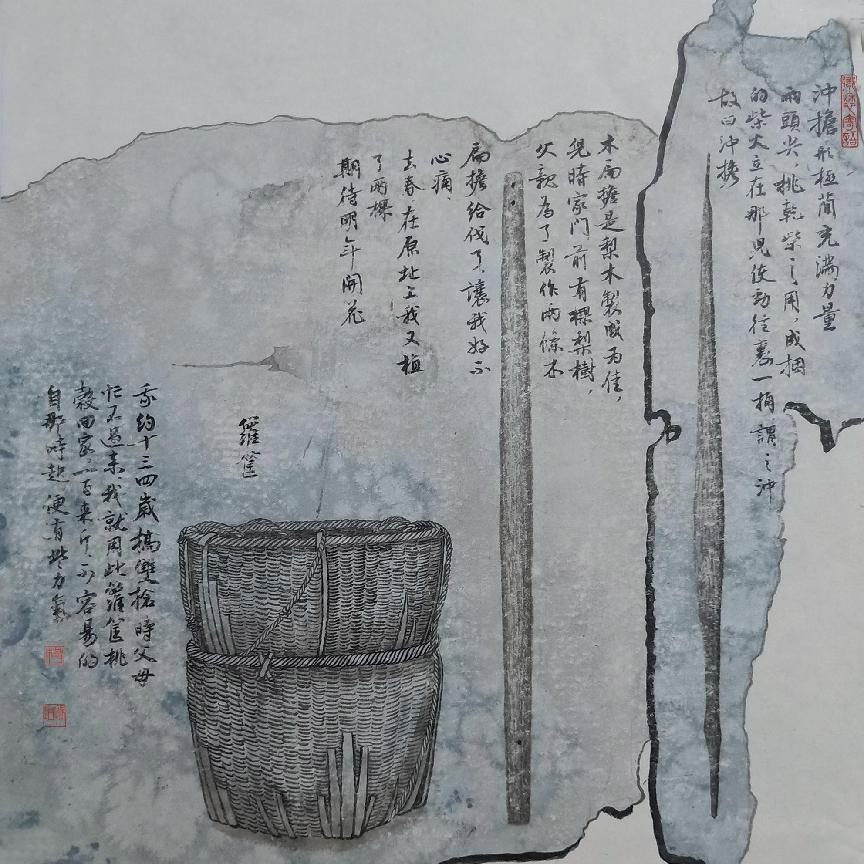 沖擔形極簡充滿力量
兩頭尖，挑乾柴之用，成捆
的柴火立在那兒使勁往裏一捅謂之沖
故曰沖擔
木扁擔是梨木製做為佳，
兒時家門前有棵梨樹，
父親為了製作兩條木
扁擔給伐了，讓我好不
心痛、
去春在原址上我又植
了兩棵
期待明年開花
籮筐
我約十三四歲搞雙搶時父母
忙不過來，我就用此籮筐挑
穀回家一百来斤，不容易的
自那時起便有些力氣